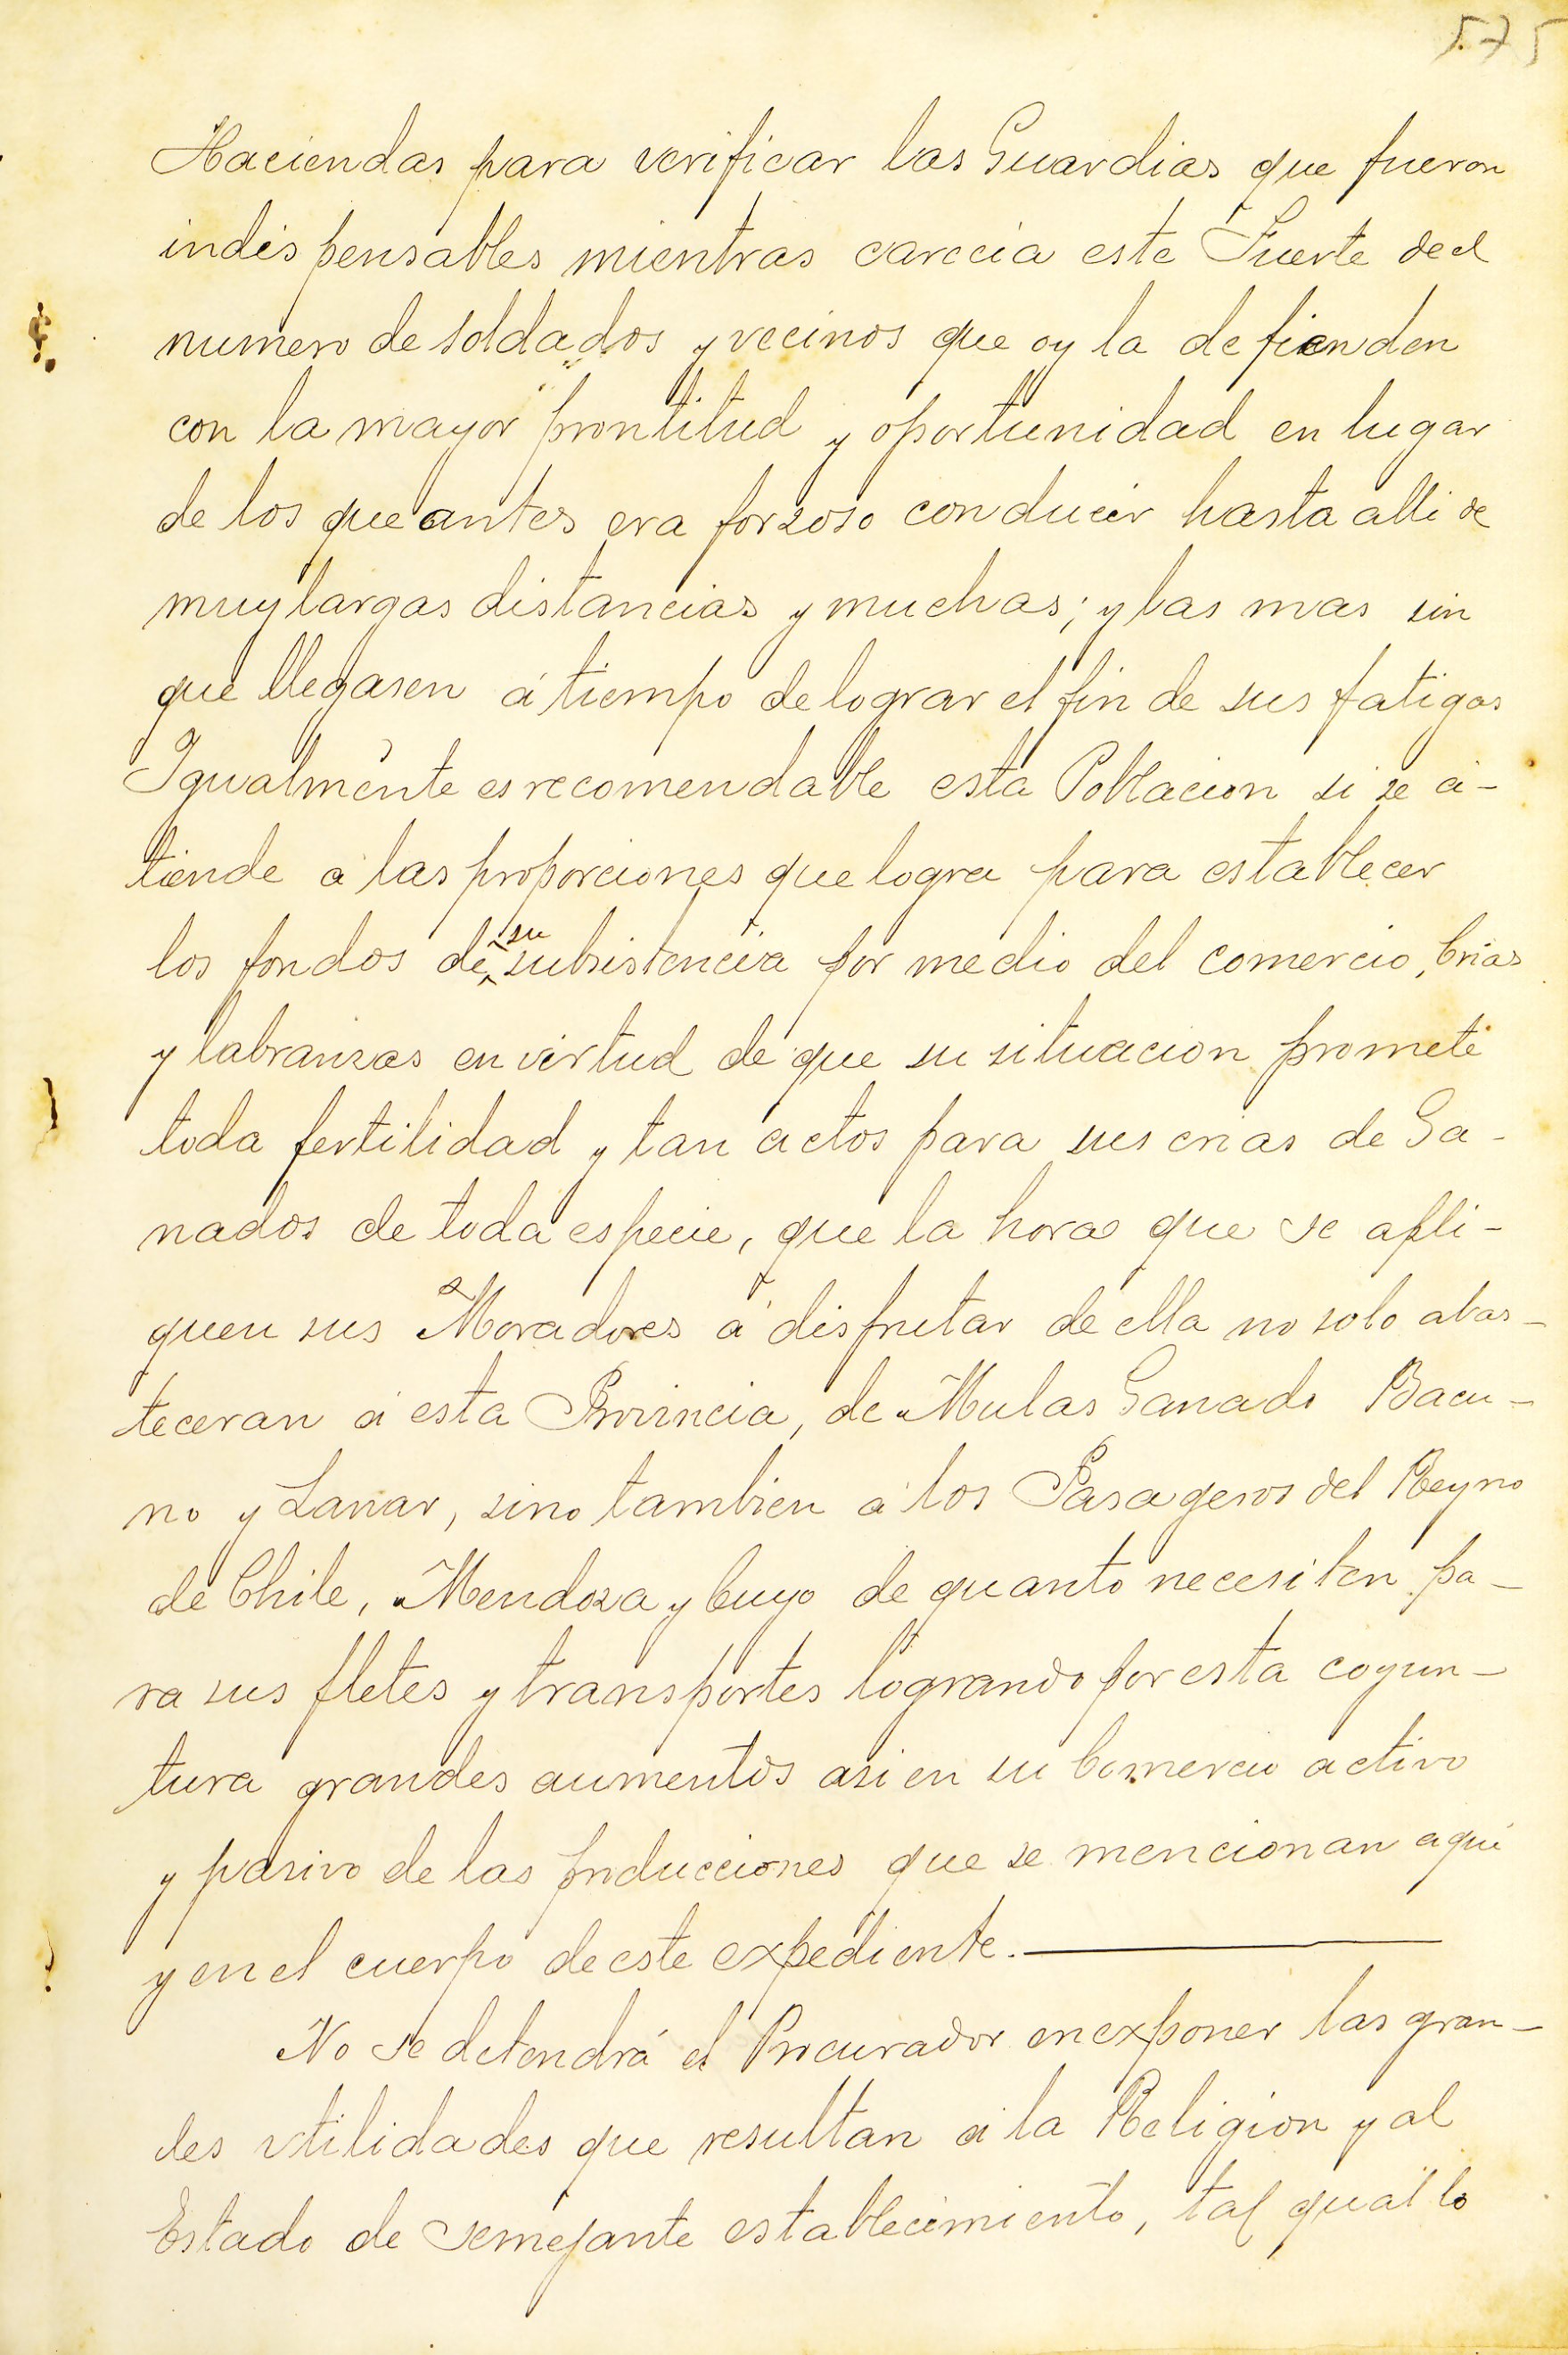 575
Haciendas para verificar las Guardias que fueron
indispensables mientras carecia este Fuerte de el
numero de soldados y vecinos que oy la defienden
con la mayor prontitud y oportunidad en lugar
de los que antes era forzoso conducir hasta alli de
muy largas distancias y muchas; y las mas sin
que llegasen á tiempo de lograr el fin de sus fatigas
Igualmente es recomendable esta Poblacion si se a-
tiende a las proporciones que logra para establecer
los fondos de su subsistencia por medio del comercio, Crias
y labranzas en virtud de que su situacion promete
toda fertilidad y tan actos para sus crias de Ga-
nados de toda especie, que la hora que se apli-
quen sus Moradores á disfrutar de ella no solo abas-
teceran á esta Provincia, de Mulas Ganado Bacu-
no y Lanar, sino tambien a los Pasageros del Reyno
de Chile, Mendoza y Cuyo de quanto necesiten pa-
ra sus fletes y transportes logrando por esta coyun-
tura grandes aumentos asi en su Comercio activo
y pasivo de las producciones que se mencionan aqui
y en el cuerpo de este expediente.
No se detendrá el Procurador en exponer las gran-
des utilidades que resultan a la Religion y al
Estado de semejante establecimiento, tal qual lo